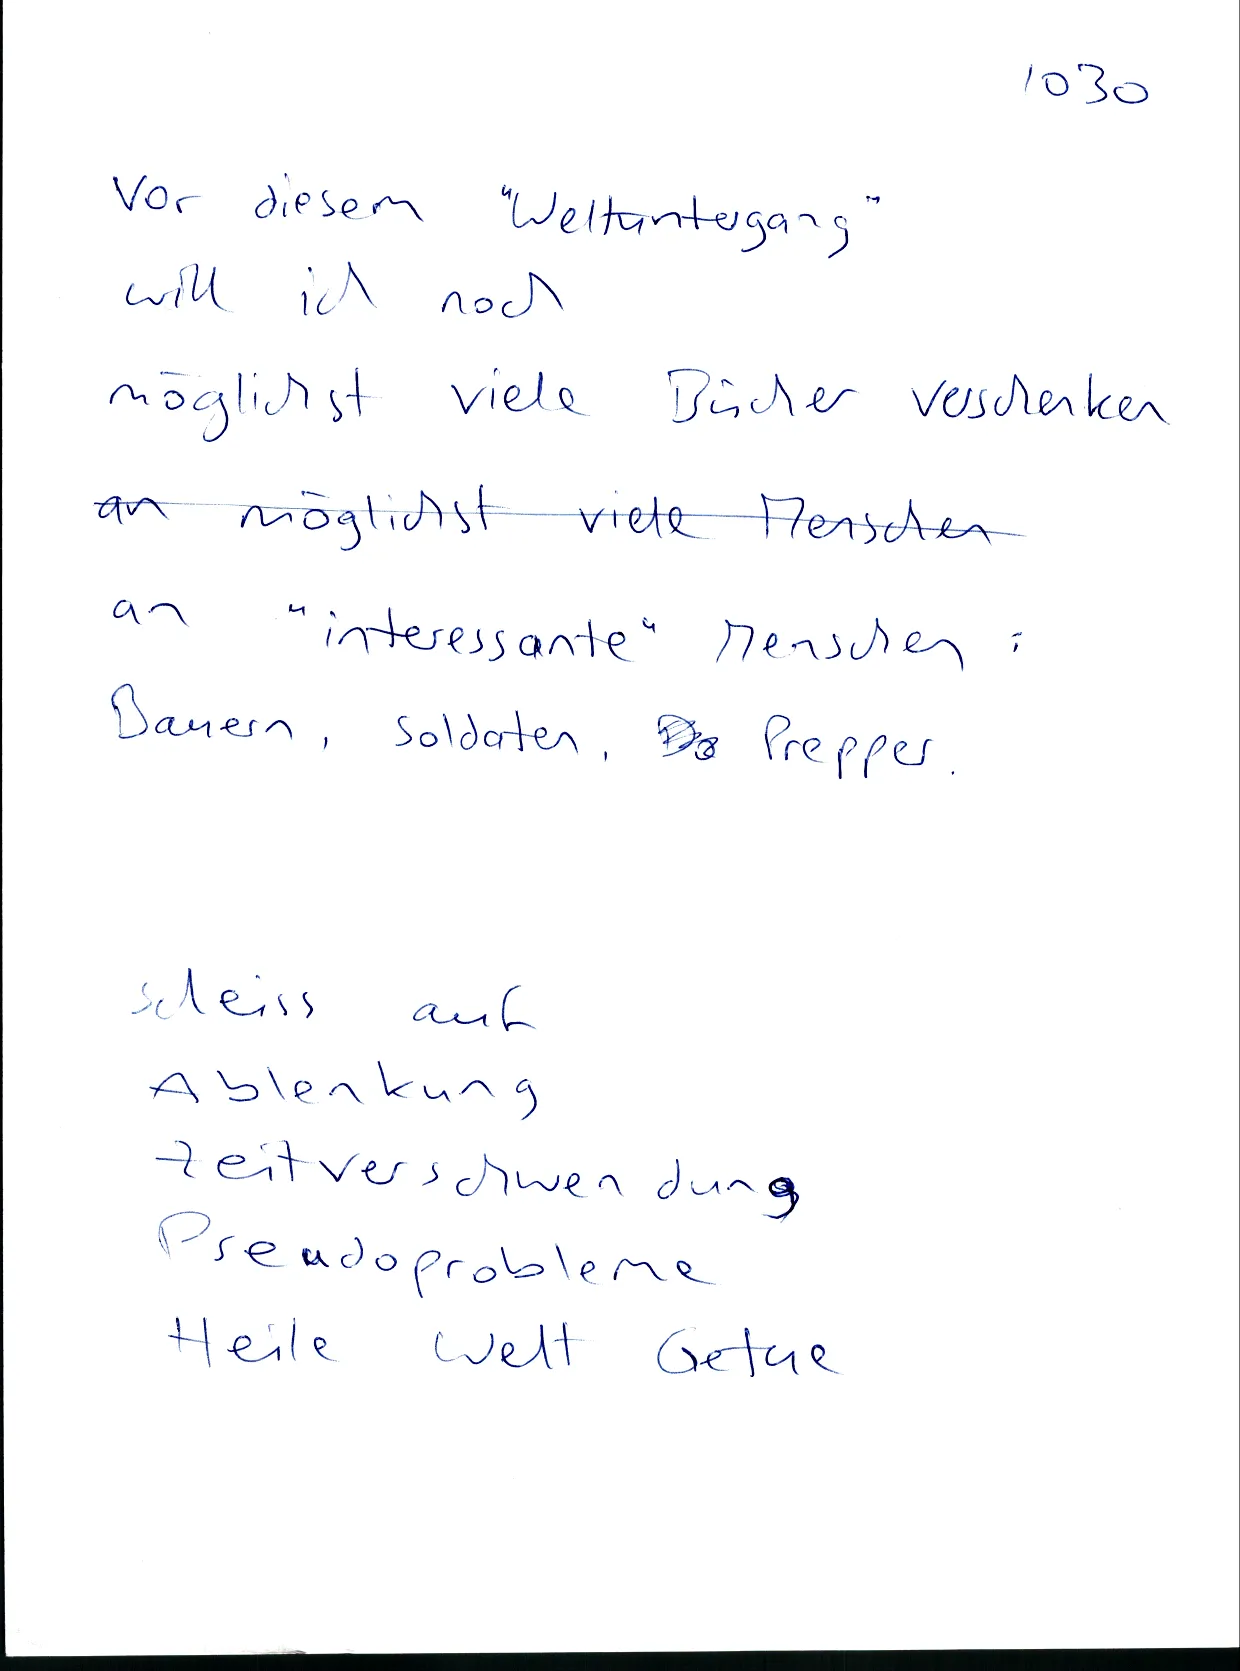 1030
Vor diesem "Weltuntergang"
will ich noch
möglichst viele Bücher verschenken
an möglichst viele Menschen
an "interessante" Menschen:
Bauern, Soldaten, Prepper.
scheiss auf
Ablenkung
Zeitverschwendung
Pseudoprobleme
Heile Welt Getue